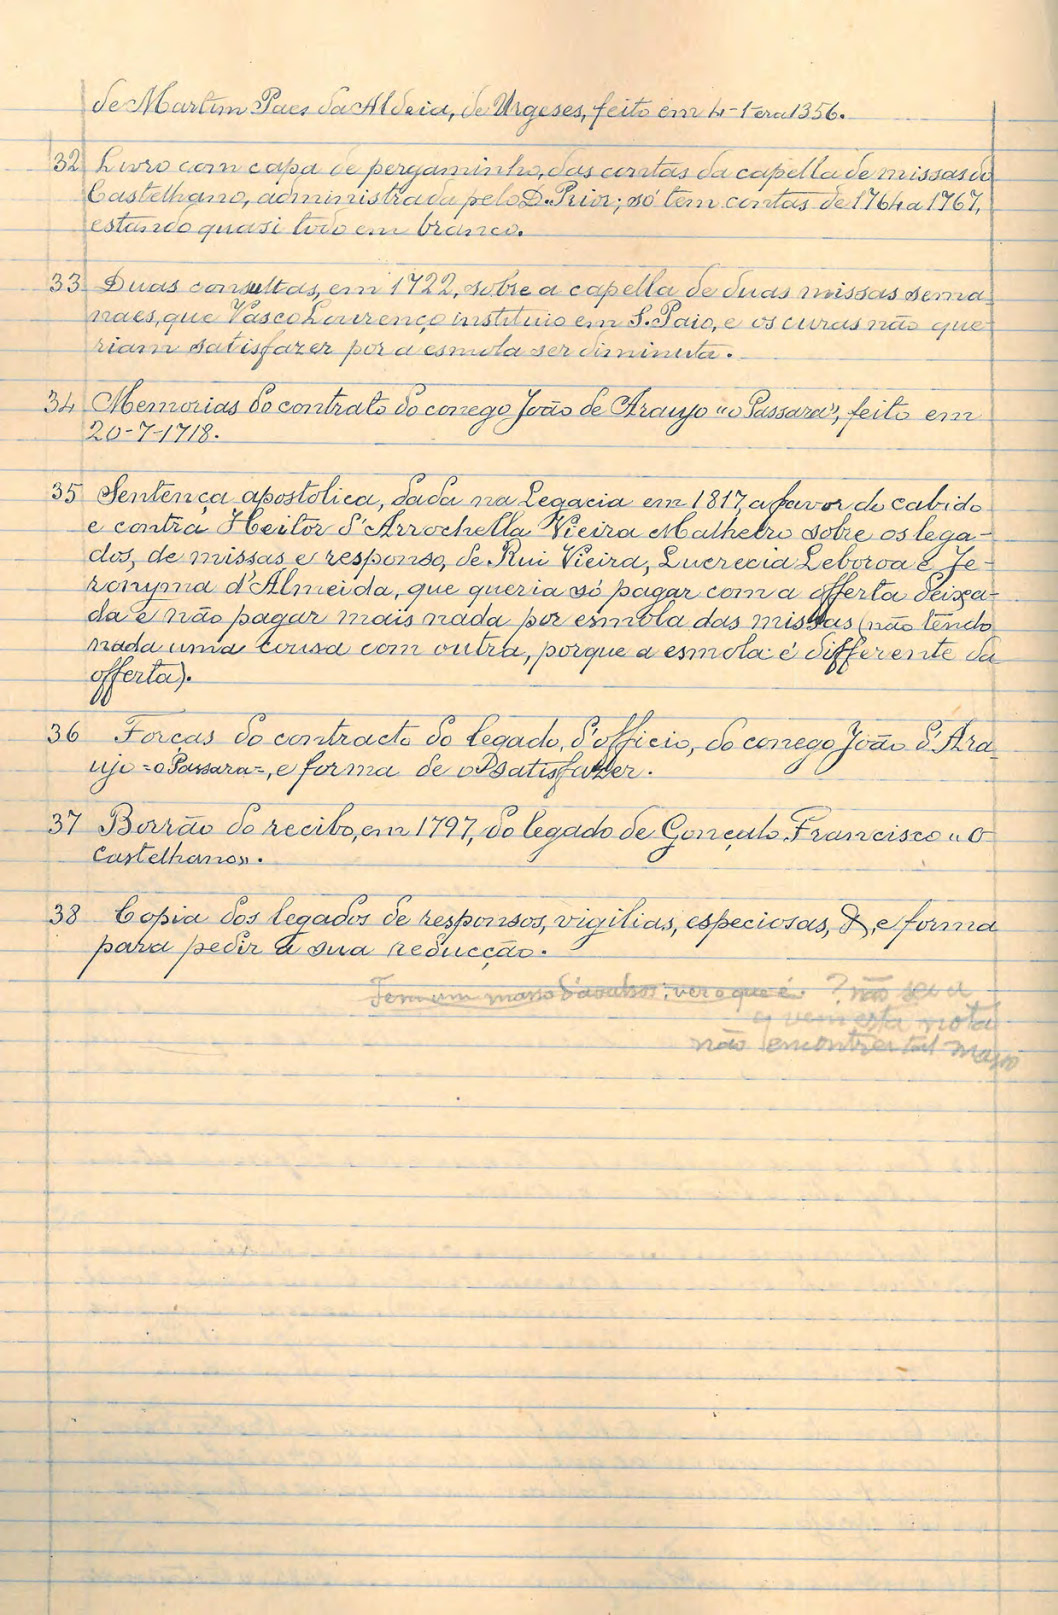 de Martim Paes da Aldeia, de Urgeses, feito em 4-1-era 1356.
32 Livro com capa de pergaminho, das contas da capella de missas do
Castelhano, administrada pelo D. Prior; só tem contas de 1764 a 1767,
estando quasi todo em branco.
33 Duas consultas, em 1722, sobre a capella de duas missas sema-
naes, que Vasco Lourenço instituio em S. Paio, e os curas não que-
riam satisfazer por a esmola ser diminuta.
34 Memorias do contrato do conego João de Araujo "o Passara", feito em
20-7-1718.
35 Sentença apostolica, dada na Legacia em 1817, a favor do cabido
e contra Heitor d'Arrochella Vieira Malheiro sobre os lega-
dos, de missas e responso, de Rui Vieira, Lucrecia Leboroa e Je-
ronyma d'Almeida, que queria só pagar com a offerta deixa-
da e não pagar mais nada por esmola das missas (não tendo
nada uma cousa com outra, porque a esmola é differente da
offerta).
36 Forças do contracto do legado, d'officio, do conego João d'Ara-
ujo =o Passara=, e forma de o satisfazer.
37 Borrão do recibo, em 1797, do legado de Gonçalo Francisco "O
Castelhano".
38 Copia dos legados de responsos, vigilias, especiosas, &, e forma
para pedir a sua reducção.
Tem um masso d'avulsos: ver o que é. ? não sei a
q vem esta nota
não encontrei tal masso